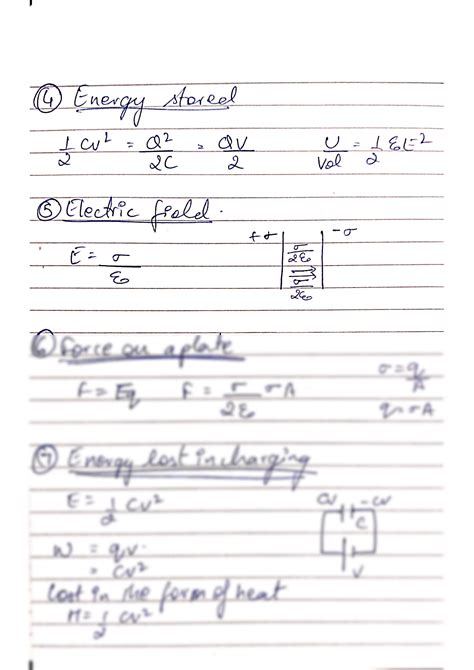 ④ Energy stored
1/2 CV² = Q²/2C = QV/2    U/Vol = 1/2 ε₀E²
⑤ Electric field.
E = σ/ε₀    +σ    σ/2ε₀    σ/2ε₀    -σ
⑥ Force on a plate
F = Eq    F = σ/2ε₀ σA    σ = q/A
q = σA
⑦ Energy lost in charging
E = 1/2 CV²    CV    -CV
C
W = qV.
= CV²    V
Lost in the form of heat
H = 1/2 CV²